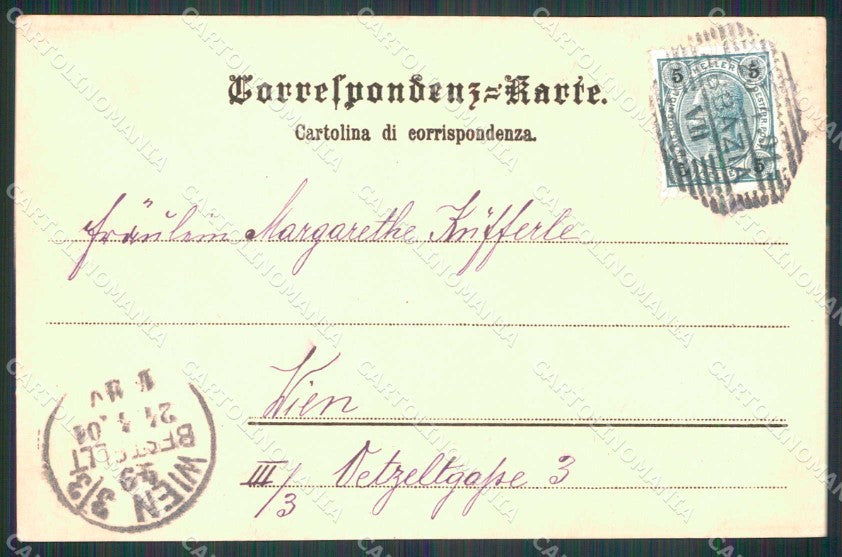 Correspondenz=Karte.
Cartolina di corrispondenza.
5 HELLER 5
5 5
ABBAZIA
VII
Fräulein Margarethe Küfferle
Wien
III/3 Oetzeltgaſse 3
WIEN 3/3
49
BESTELLT
24.4.01
CARTOLINOMANIA